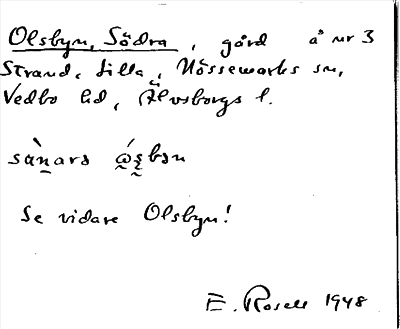 Olsbyn, Södra, gård å nr 3
Strand, lilla, Nössemarks sn,
Vedbo hd, Älvsborgs l.
Se vidare Olsbyn!
E. Rosell 1948